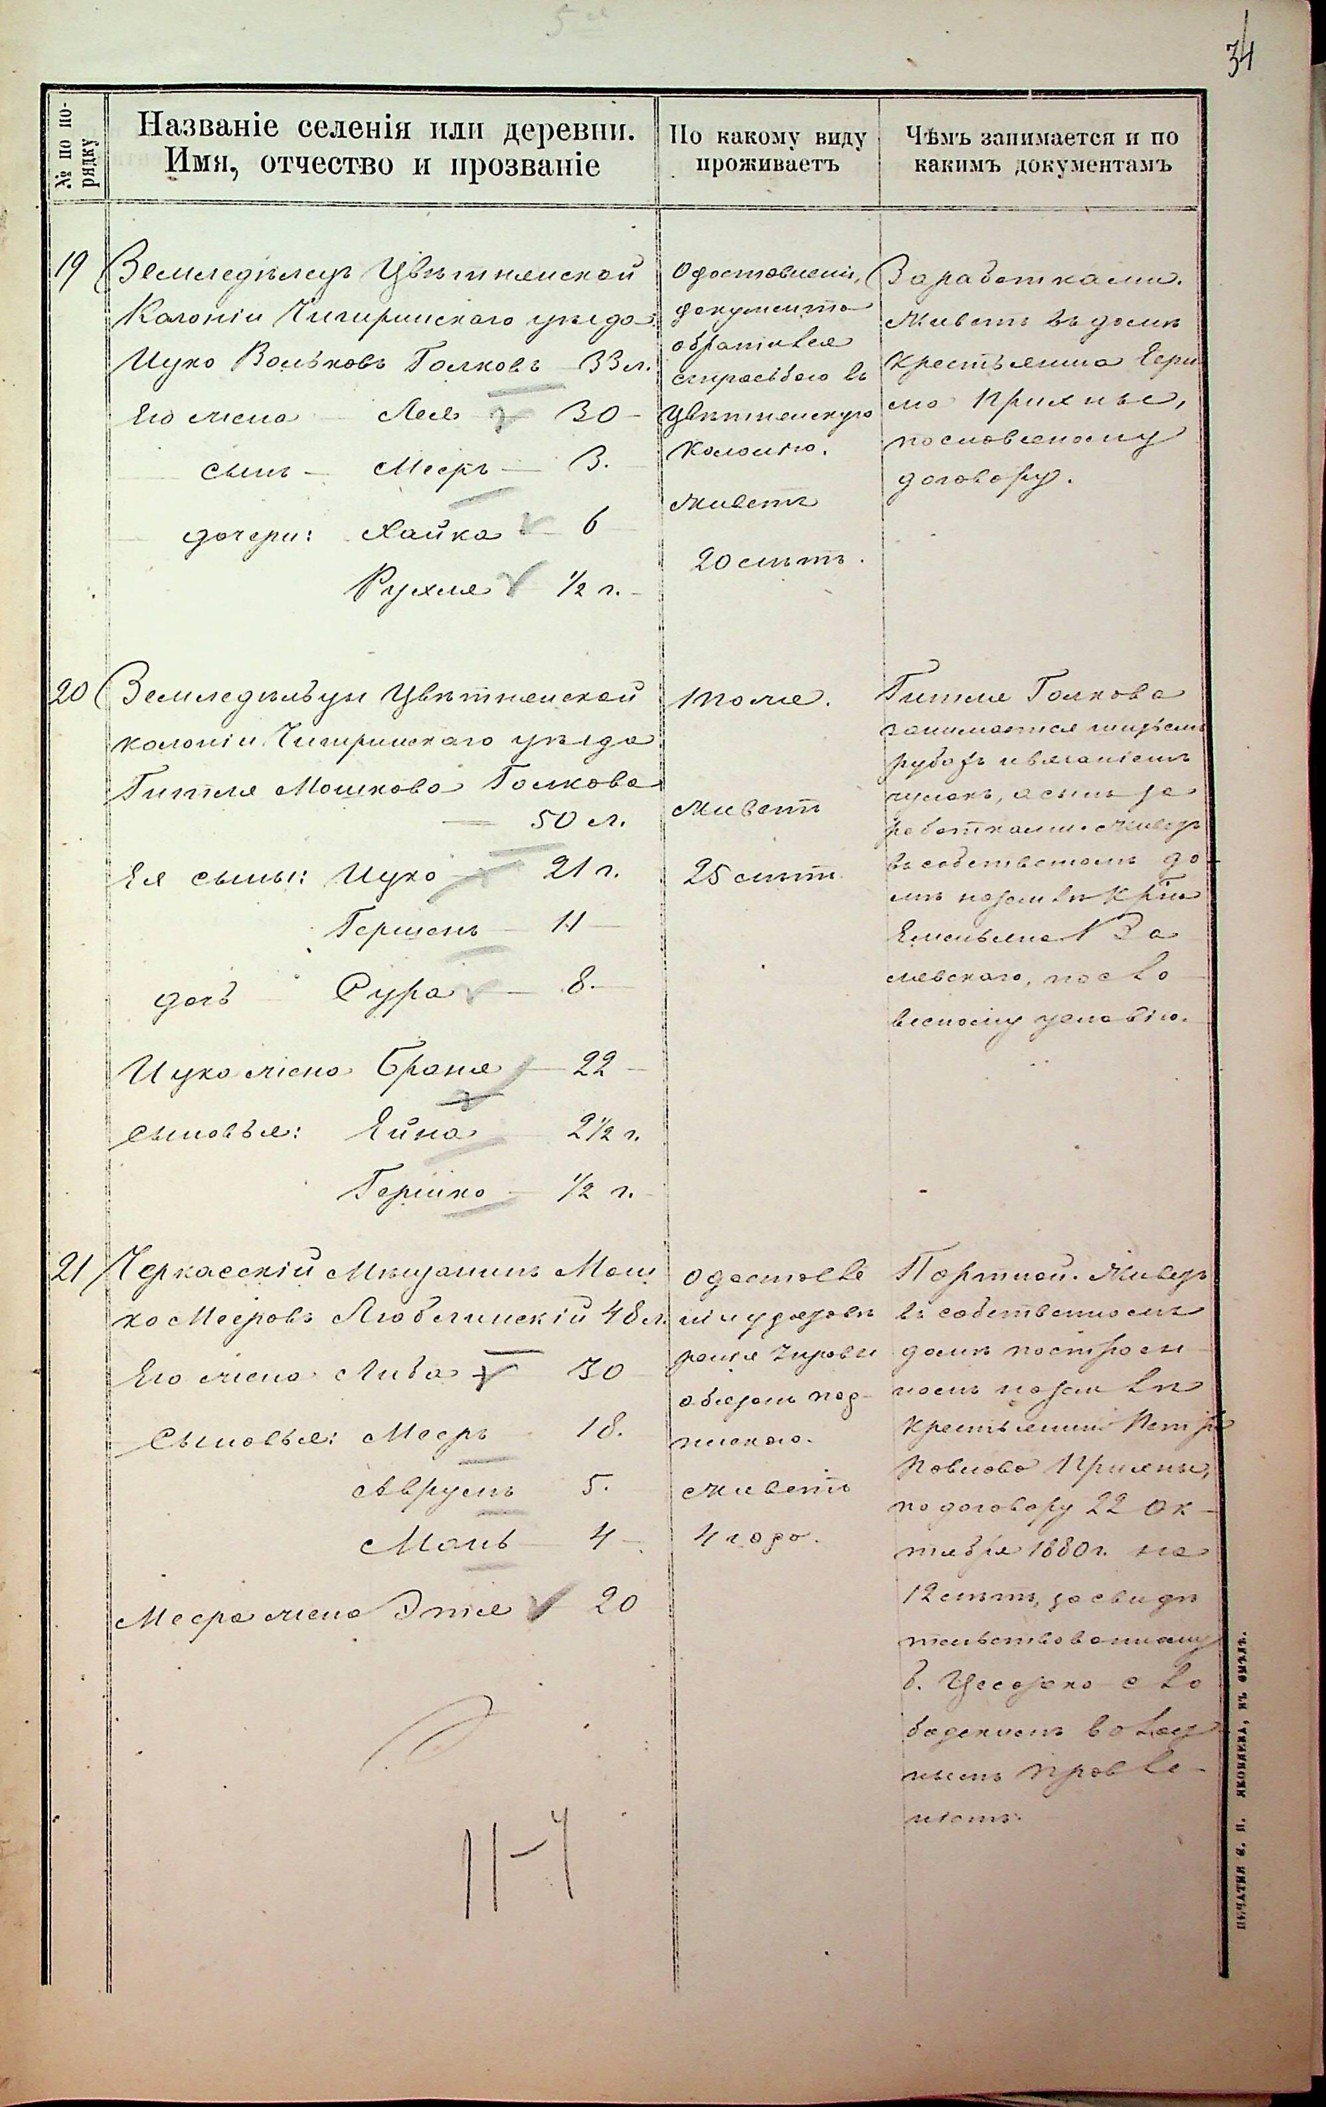 34
№ по по-
рядку
Названіе селенія или деревни.
Имя, отчество и прозваніе
По какому виду
проживаетъ
Чѣмъ занимается и по
какимъ документамъ
19
Земледѣлецъ Цвѣтнянской
Колоніи Чигиринскаго уѣзда
Ицко Вольковъ Голковъ 33 л.
Его жена Лея 30
сынъ Меерь 3.
дочери: Хайка 6
Рухля 1/2 г.
О доставленіи
документа
обратился
съ просьбою въ
Цвѣтнянскую
Колонію.
живетъ
20 лѣтъ.
Заработками.
Живетъ въ домѣ
Крестьянина
по словесному
договору.
20
Земледѣльцы Цвѣтнянской
колоніи Чигиринскаго уѣзда
Гитля Мошкова Голкова
50 л.
Ея сыны: Ицко 21 г.
Гершень 11
дочь Сура 8.
Ицка жена Браня 22
сыновья: Ейна 2 1/2 г.
Гершко 1/2 г.
тоже.
живетъ
25 лѣтъ
Гитля Голкова
занимается шитьемъ
рубахъ и вязаніемъ
чулокъ, а сынъ за
работками. Живутъ
въ собственномъ до
мѣ на землѣ Кр-на
Емельяна За
левскаго, по сло
весному условію.
21
Черкасскій Мѣщанинъ Мош
ко Мееровъ Люблинскій 48 л.
Его жена Либа 30
Сыновья: Меерь 18.
Аврумъ 5.
Мань 4
Меера жена Этя 20
О доставле
ніи удостовѣ
ренія
обязанъ под-
пискою.
живетъ
4 года.
Портной. Живетъ
въ собственномъ
домѣ построен-
номъ на землѣ
Крестьянина Петра
Павлова
по договору 22 Ок-
тября 1880 г. на
12 лѣтъ, засвидѣ
тельствованному
волост
нымъ правле-
ніемъ.
11-4
ПЕЧАТНЯ С. П. ЯКОВЛЕВА, ВЪ СМѢЛѢ.